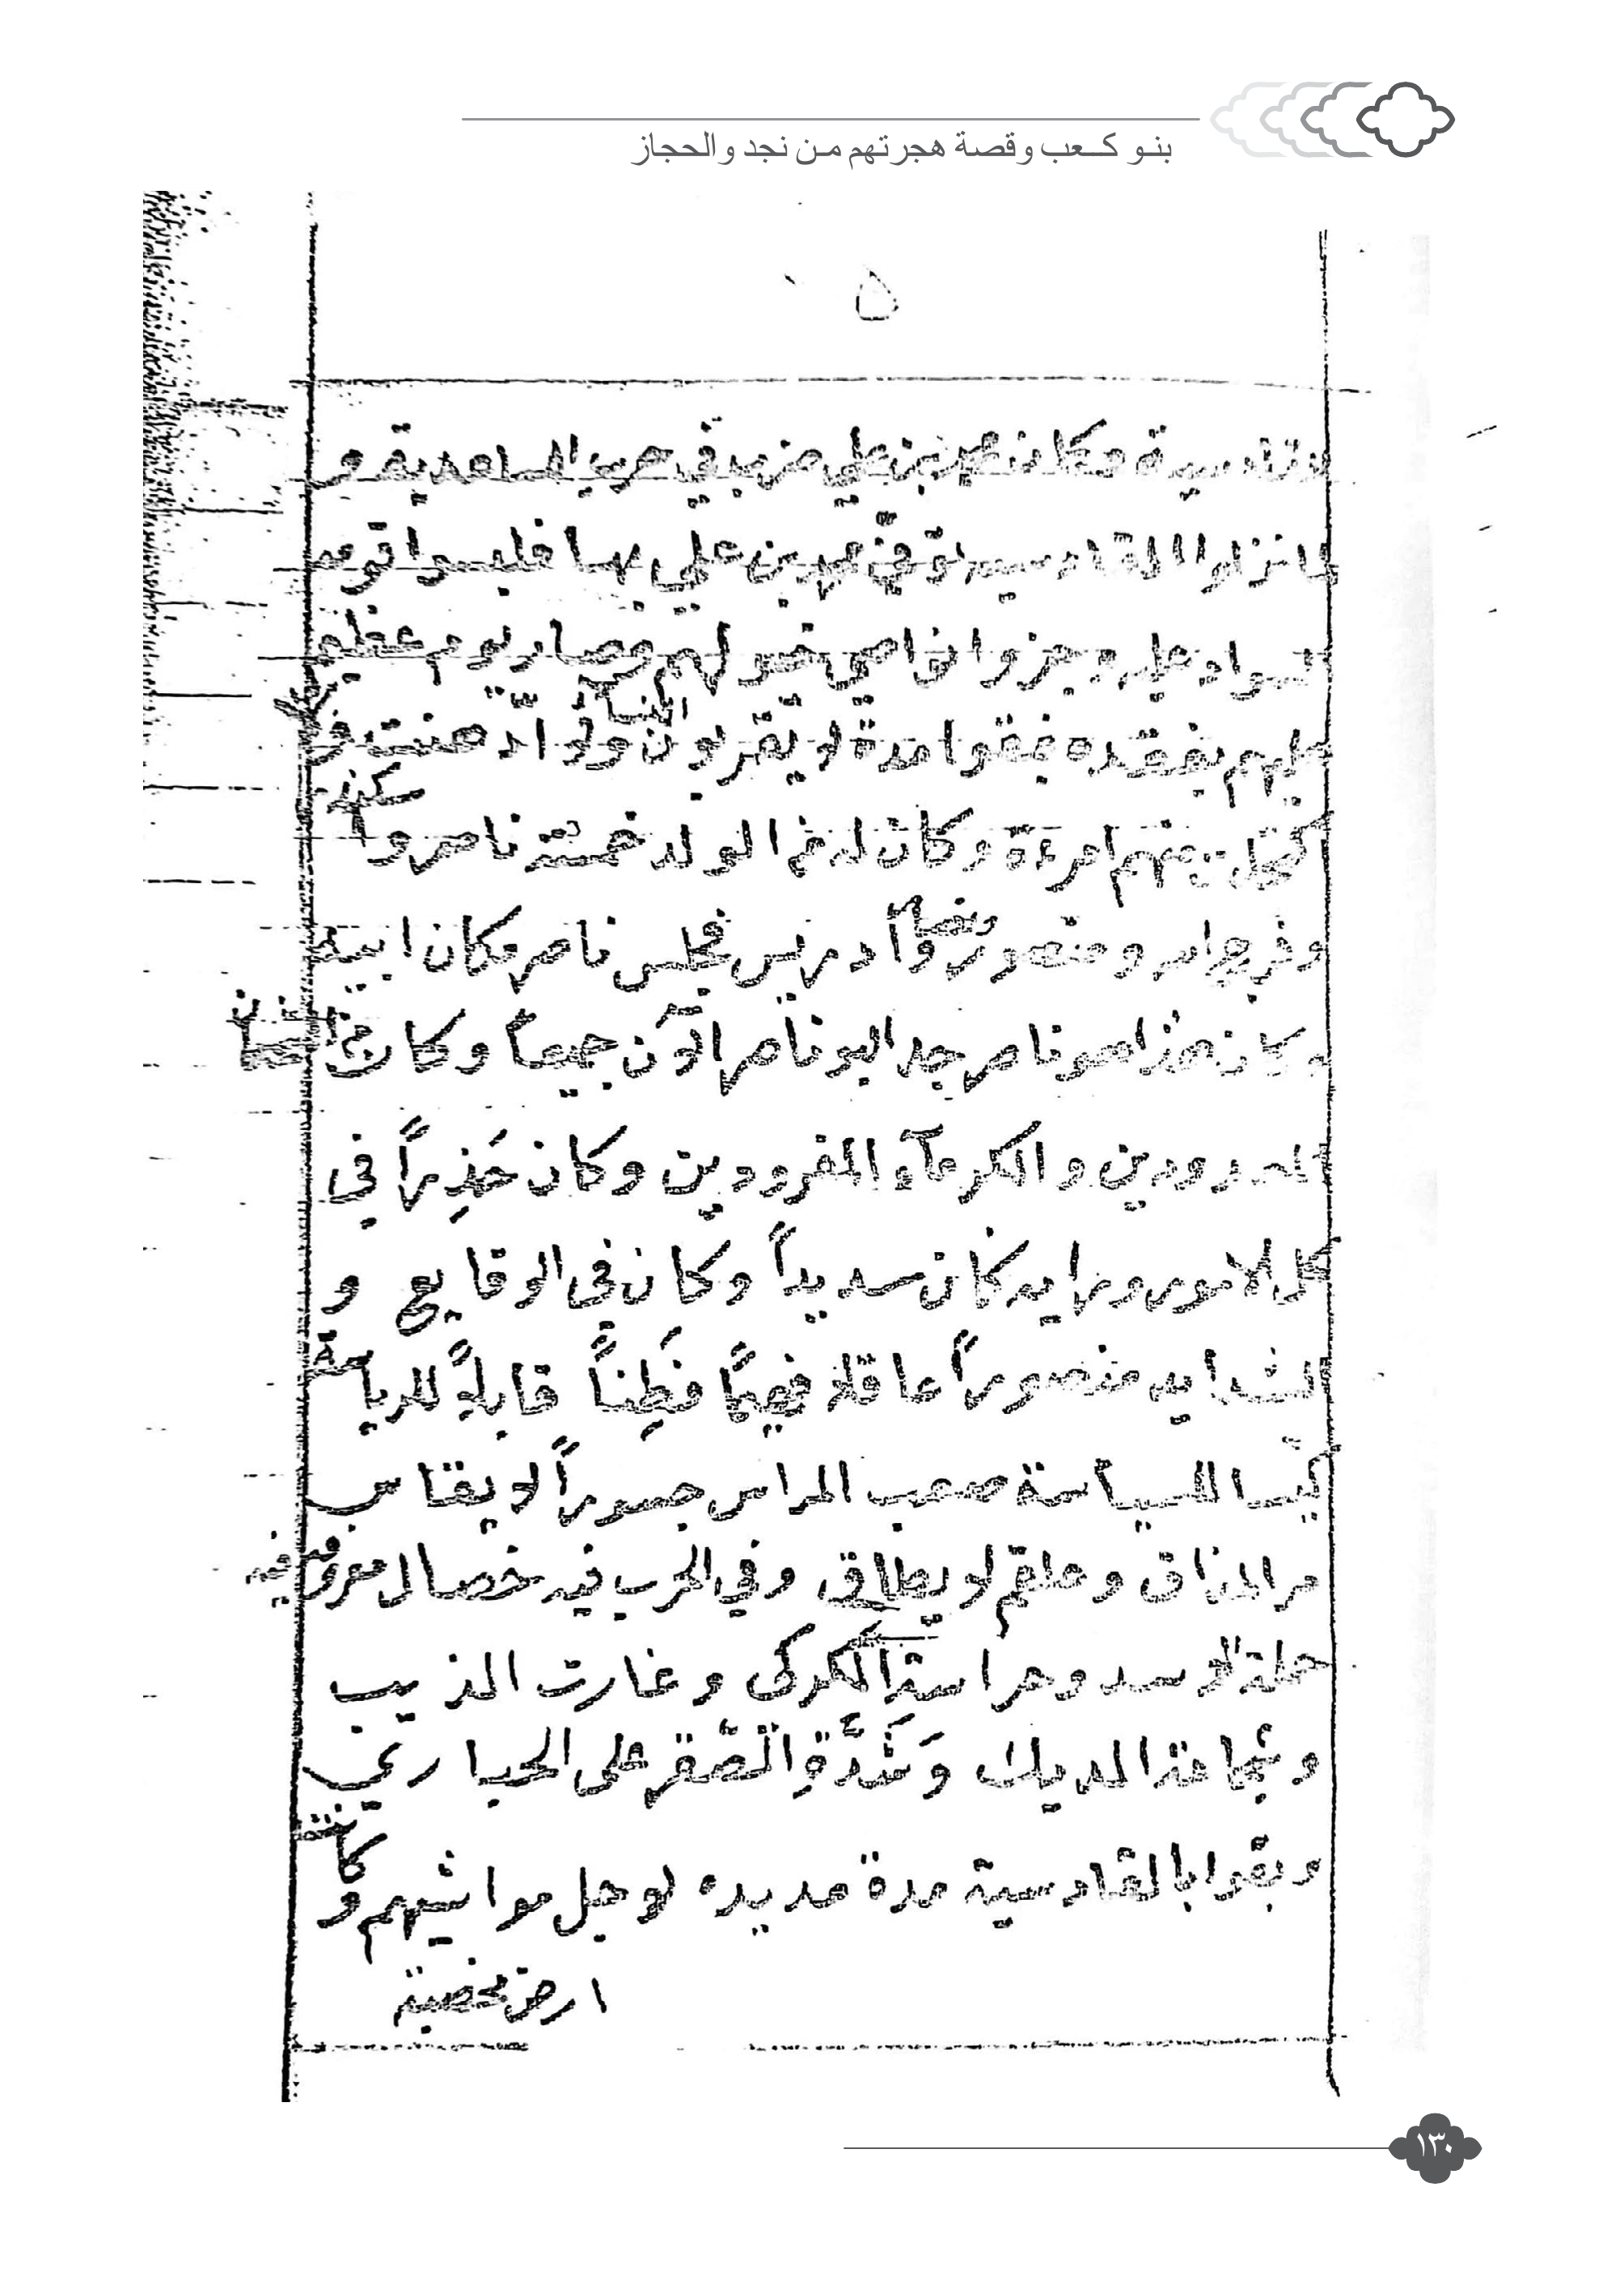 بنو كعب وقصة هجرتهم من نجد والحجاز
۵
وكان محمد بن علي ضرب في حرب و
لما نزلوا القادسيه توفي محمد بن علي بها فلبسوا قومه
السواد عليه وجزوا نواصي خيولهم وصار يوم عظيم
عليهم بفقده فبقوا مدة لا يقربون النسا ولا ادهنت ولا
اكتحلت منهم امرءة وكان له من الولد خمسة ناصر و
وفرج الله ومنصور وادريس فجلس ناصر مكان ابيه
وكان هذا هو ناصر جد البو ناصر الآن جميعاً وكان من
المعدودين والكرمآء المفرودين وكان حَذِراً في
كل الامور ورايه كان سديداً وكان في الوقايع و
الشدايد منصوراً عاقلاً فهيماً فَطِناً قابلاً للرياسة
كيسا للسياسة صعب المراس جسوراً لا يقاس
مر المذاق وعلقم لا يطاق وفي الحرب فيه خصال معروفه فيه
حملة الاسد وحراسة الكركى وغارت الذيب
وشجاعة الديك وَشَدَّةِ الصَّقر على الحبارى
وبقوا بالقادسية مدة مديده لاجل مواشيهم وكانت
ارض مخصبة
١٣٠